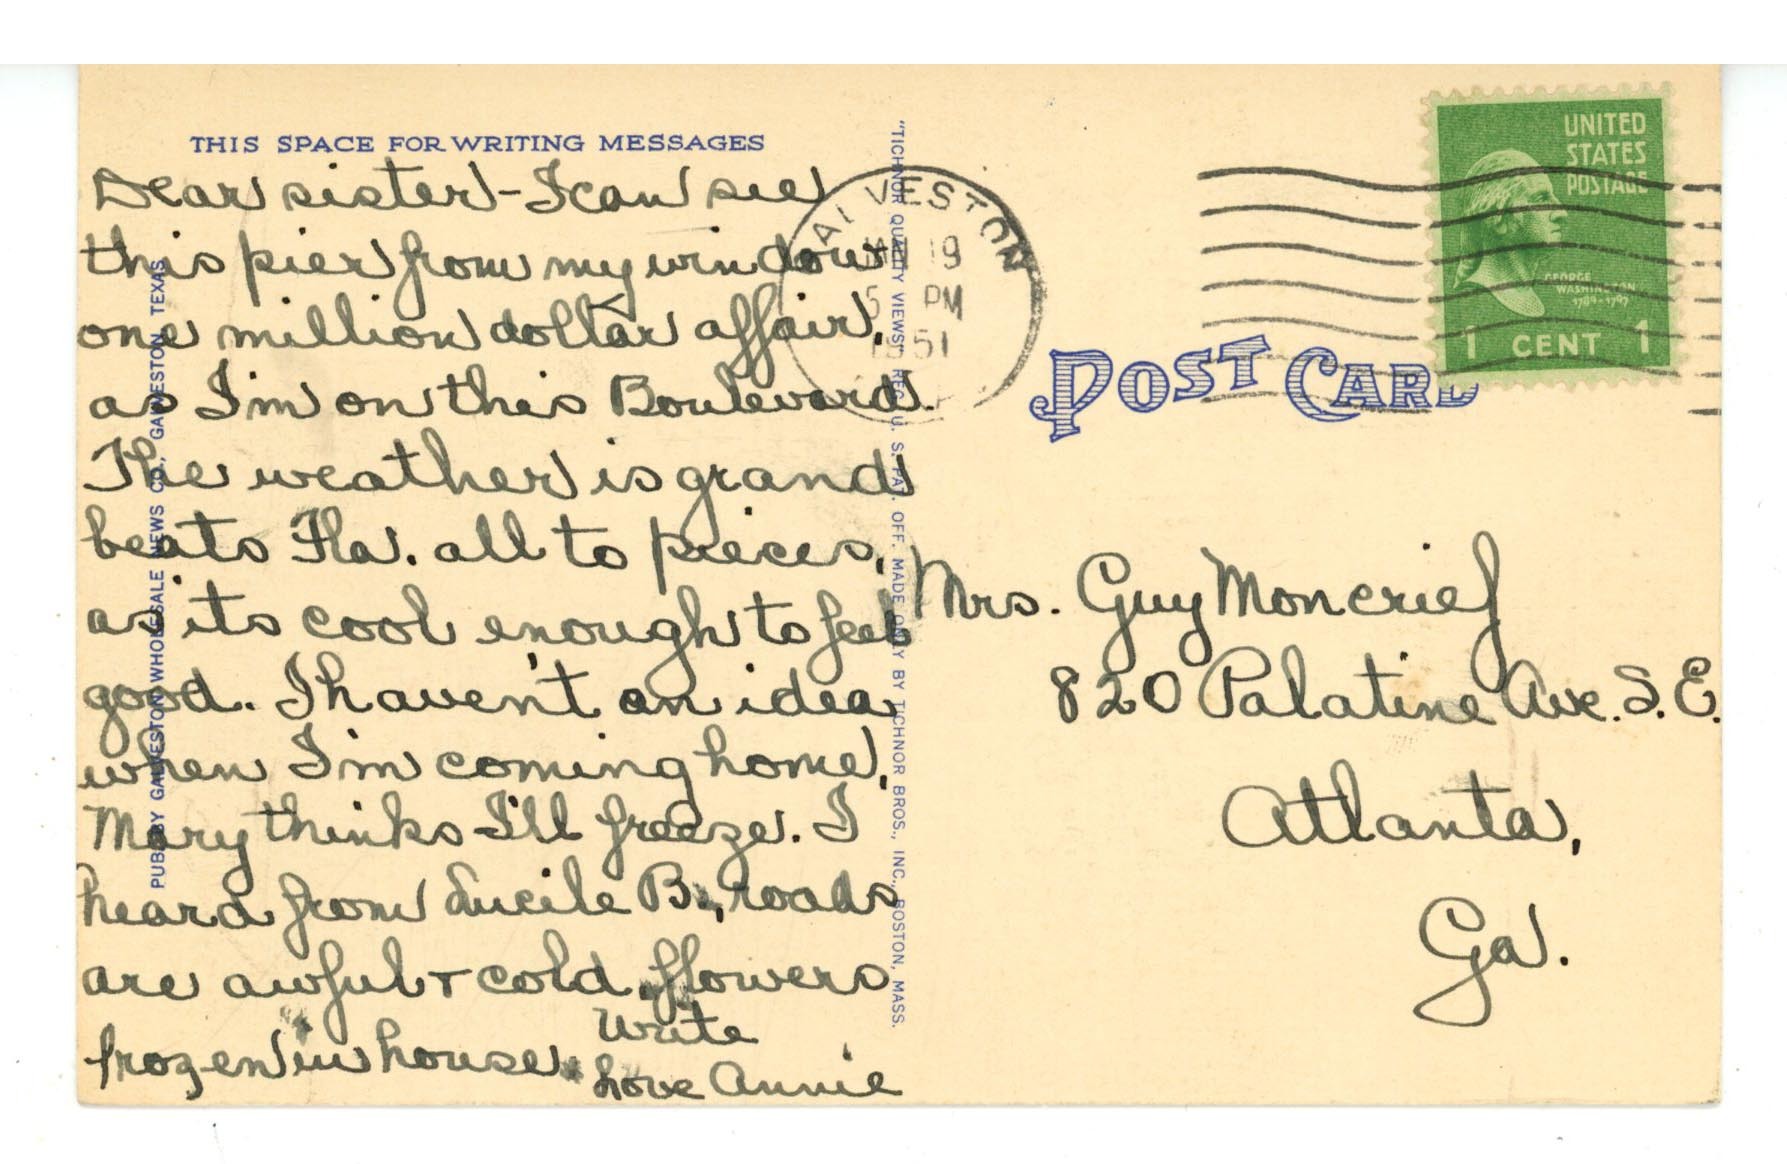 THIS SPACE FOR WRITING MESSAGES
Dear sister - I can see
this pier from my window
one million dollar affair,
as I'm on this Boulevard.
The weather is grand
beats Fla. all to pieces,
as its cool enough to feel
good. I haven't an idea
when I'm coming home,
Mary thinks I'll freeze. I
heard from Lucile B., roads
are awful + cold, flowers
frozen in house.
Write
Love Annie
PUB. BY GALVESTON WHOLESALE NEWS CO., GALVESTON, TEXAS
"TICHNOR QUALITY VIEWS" REG. U. S. PAT. OFF. MADE ONLY BY TICHNOR BROS., INC., BOSTON, MASS.
GALVESTON
JAN 19
5 PM
1951
UNITED
STATES
POSTAGE
GEORGE
WASHINGTON
1789-1797
1 CENT 1
POST CARD
Mrs. Guy Moncrief
820 Palatine Ave. S.E.
Atlanta,
Ga.